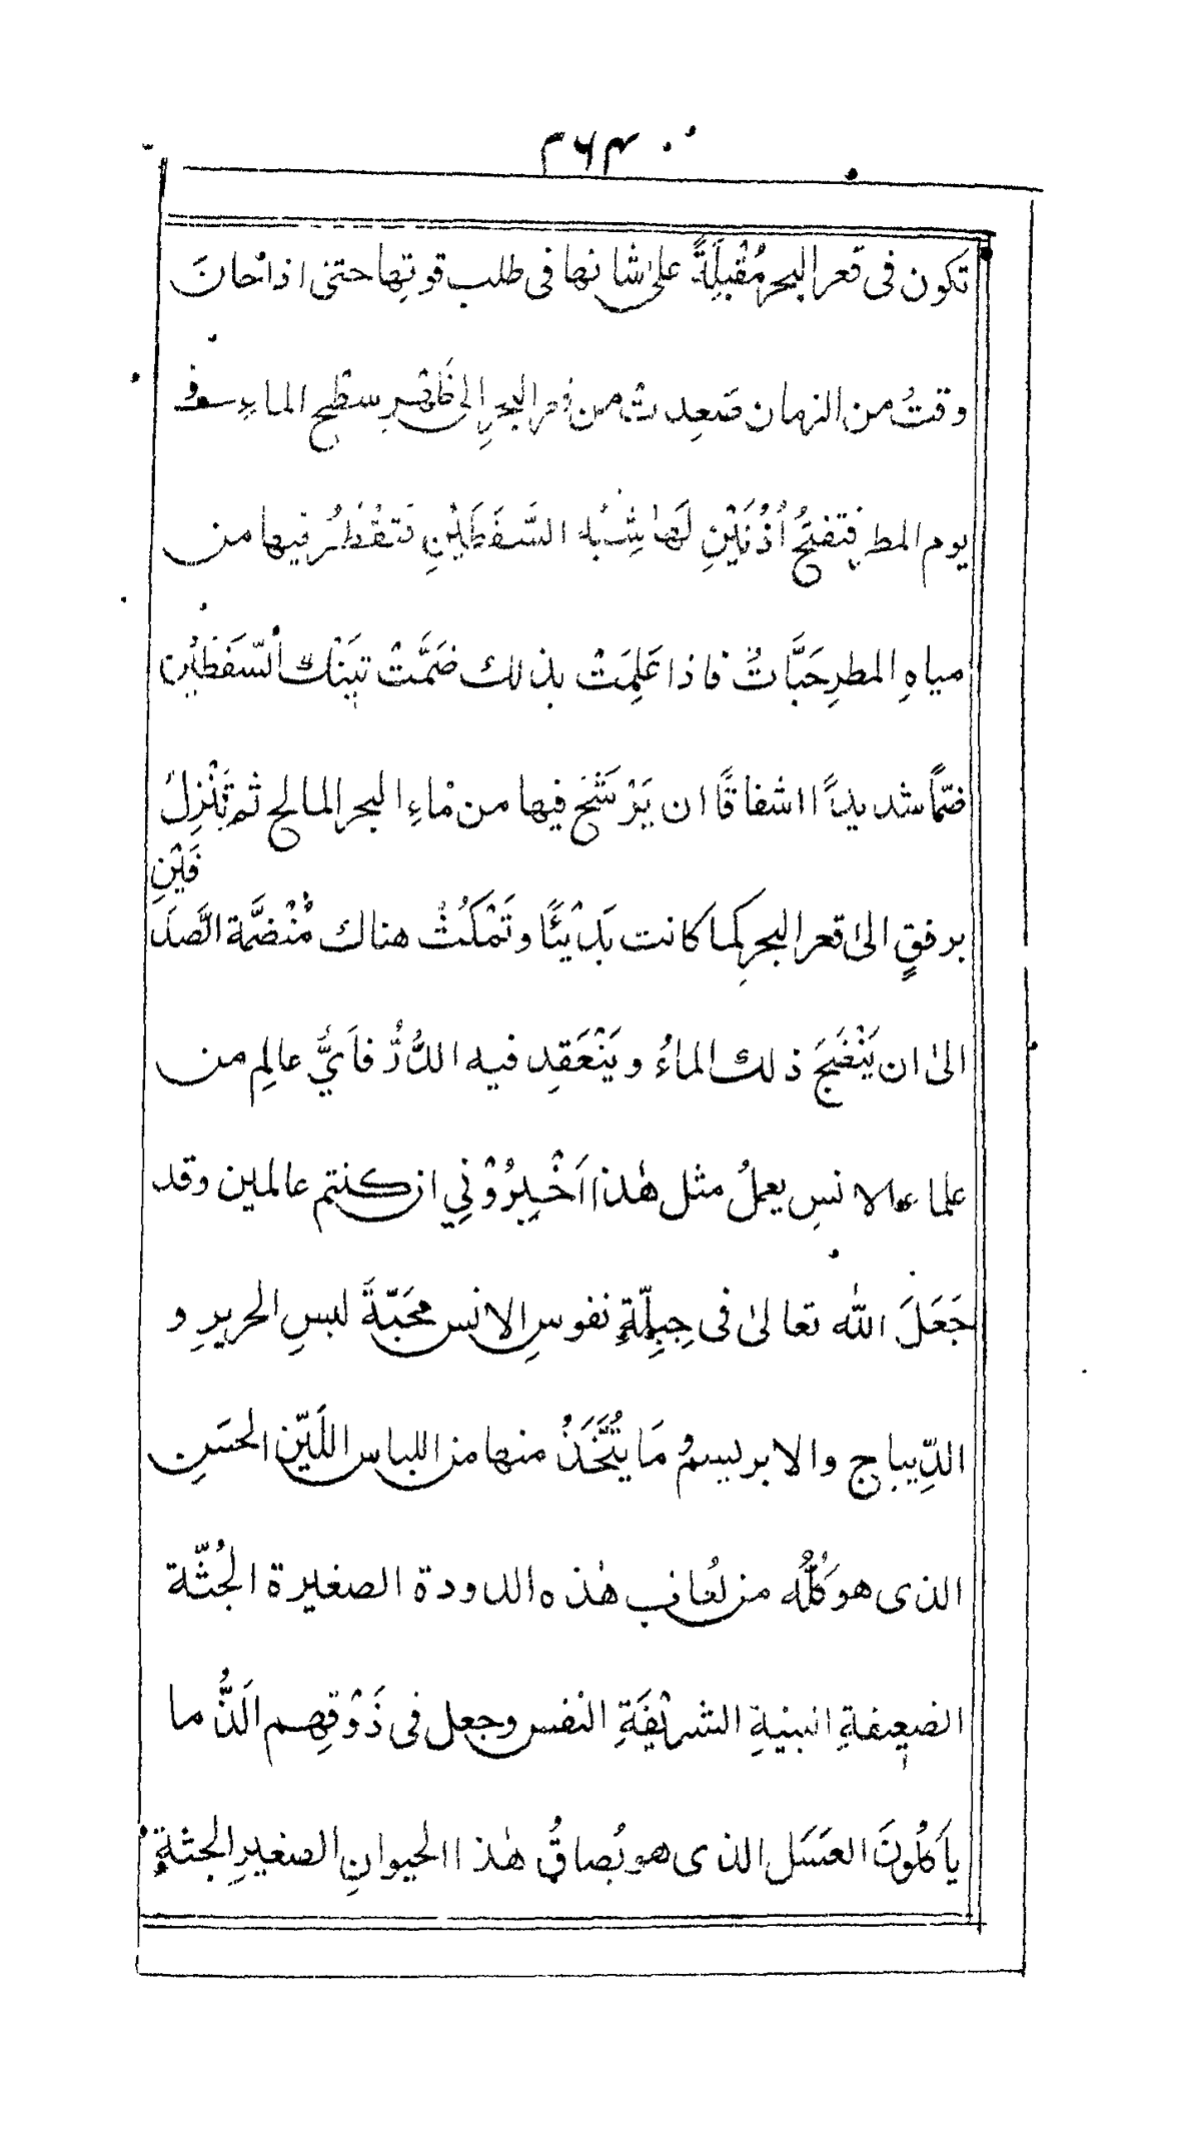 ۳۶۴
تكون فى قعر البحر مُقْبِلَةً على شانها فى طلب قوتِها حتى اذا حانَ
وقتُ من الزمان صَعِدتْ من قعر البحرِ الى ظَهْرِ سطْحِ الماءِ فى
يوم المطر فتفتحُ اُذُنَيْنِ لَها شِبْهَ السَّفَطَيْنِ فَتَقْطُرُ فيها من
مياهِ المطرِ حَبَّاتٌ فاذا عَلِمَتْ بذلك ضَمَّتْ تَيْنِكَ السَّفَطَيْنِ
ضمًّا شديدًا اشفاقًا ان يَرْشَحَ فيها من ماءِ البحر المالح ثم تَنْزِلُ
برفقٍ الىٰ قعر البحرِ كما كانت بَدْيَئًا و تَمْكُثُ هناك مُنْضَمَّة الصَّدَ
فَيْنِ
الىٰ ان يَنْضَجَ ذلك الماءُ و يَنْعَقِد فيه الدُّرُّ فاَيُّ عالِم من
علماء الانسِ يعملُ مثل هٰذا اَخْبِرُوْنِي ان كنتم عالمين وقد
جَعَلَ الله تعالىٰ فى جِبِلّةِ نفوسِ الانس محَبّةَ لبسِ الحريرِ و
الدِّيباج والابريسم وَ مَا يُتَّخَذُ منها من اللباس اللَيِّن الحسَنِ
الذى هو كُلُّه من لُعاب هٰذه الدودة الصغيرة الجُثّة
الضعيفةِ البنيةِ الشريْفَةِ النفس وجعل فى ذَوْقِهم اَلَذُّ ما
يأكلُونَ العَسَل الذى هو بُصاقُ هٰذا الحيوانِ الصغيرِ الجثةِ